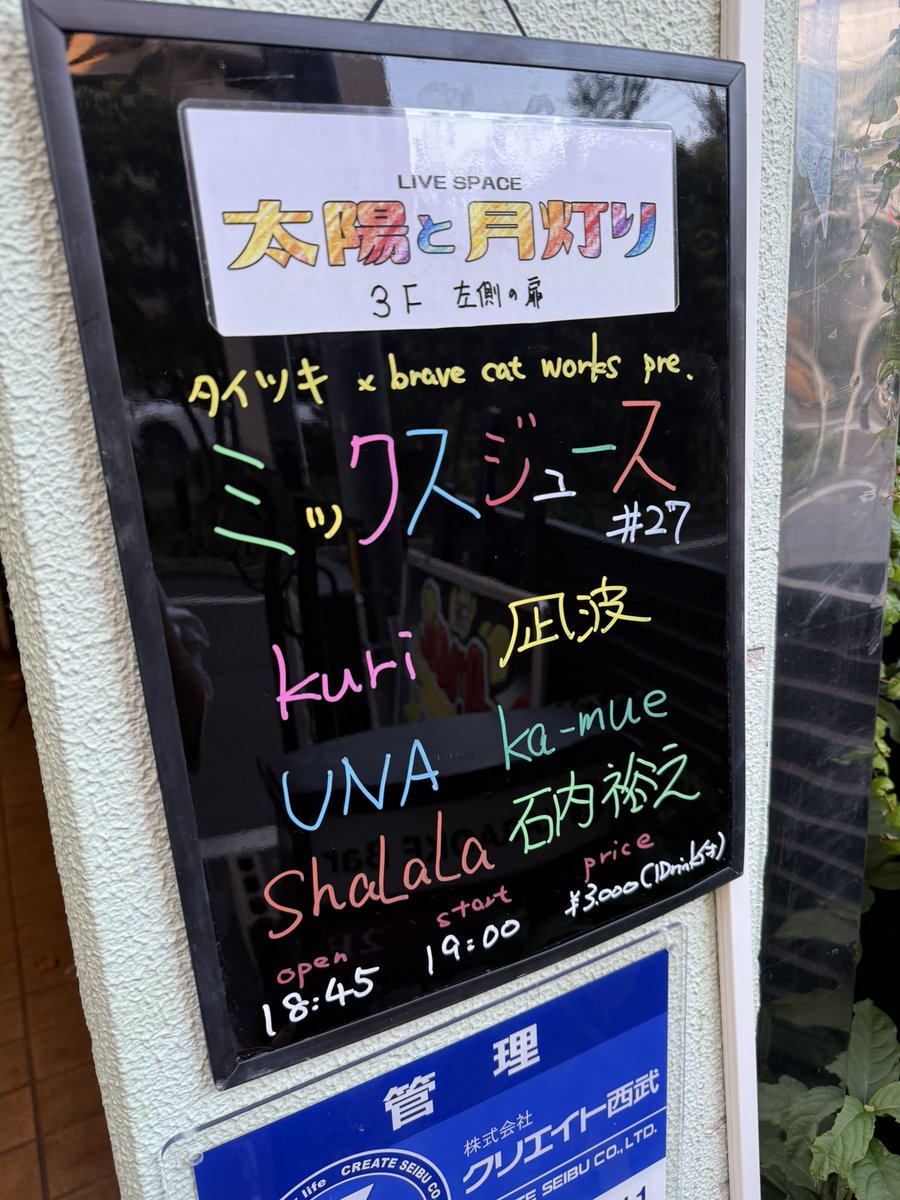 LIVE SPACE
太陽と月灯り
3F 左側の扉
タイツキ × brave cat works pre.
ミックスジュース
#27
kuri 凪波
UNA ka-mue
ShaLaLa 石内裕之
open start price
18:45 19:00 ¥3.000(1Drink付)
管理
株式会社
クリエイト西武
CREATE SEIBU CO., LTD.
life CREATE SEIBU CO